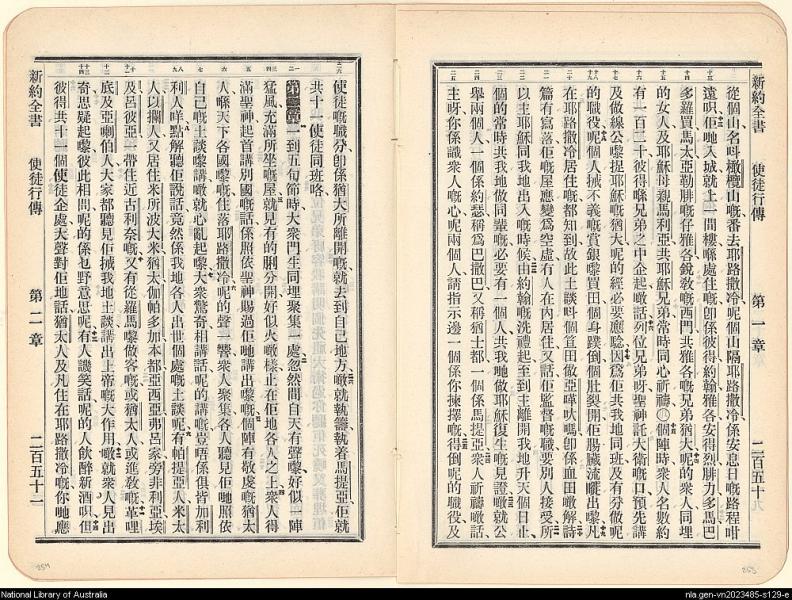 新約全書
使徒行傳
第一章
二百五十
從個山名呌橄欖山嘅番去耶路撒冷呢個山隔耶路撒冷係安息日嘅路程咁
遠唄佢哋入城就上一間樓嘅處住嘅卽係彼得約翰雅各安得烈腓力多馬巴
多羅買馬太亞勒腓嘅仔雅各銳敎嘅西門共雅各嘅兄弟猶大呢的衆人同埋
的女人及耶穌母親馬利亞共耶穌兄弟常時同心祈禱○個陣時衆人名數約
有一百二十彼得喺兄弟之中企起嚟話列位兄弟呀聖神託大衛嘅口預先講
及做線公嚟捉耶穌嘅猶大呢的經必要應騐因爲佢共我地同班及有分做呢
的職役呢個人搣不義嘅賞銀嚟買田個身蹼倒個肚裂開佢腸臟流曬出嚟凡
在耶路撒冷居住嘅都知到故此土談呌個笪田做亞革吠嗎卽係血田嘅解詩
篇有寫落佢嘅屋應變爲空虛有人在內居住又話佢監督嘅職要別人接受所
以主耶穌同我地出入嘅時候由約翰嘅洗禮起至到主離開我地升天個日止
個的常時共我地做同輩嘅必要有一個人共我地做耶穌復生嘅見證噉就公
舉兩個人一個係約瑟稱爲巴撒巴又稱猶士都一個係馬提亞衆人祈禱噉話
主呀你係識衆人嘅心呢兩個人請指示邊一個係你揀擇嘅得倒呢的職役及
新約全書
使徒行傳
第二章
二百五十二
使徒嘅職分卽係猶大所離開嘅就去到自己地方噉就執籌執着馬提亞佢就
共十一使徒同班咯
第二章 一到五旬節時大衆門生同埋聚集一處忽然間自天有聲嚟好似一陣
猛風充滿所坐嘅屋就見有的脷分開好似火噉樣止在佢地各人之上衆人得
滿聖神起首講別國嘅話係照依聖神賜過佢哋講出嚟嘅個陣有敬虔嘅猶太
人喺天下各國嚟嘅住落耶路撒冷呢的聲一響衆人聚集各人聽見佢哋照依
自己嘅土談嚟講噉就心亂起嚟大衆驚奇相講話呢的講嘅豈唔係俱皆加利
利人咩點解聽佢說話竟然係我地各人出世個處嘅土談呢有帕提亞人米太
人以攔人又居住米所波大米猶太伽帕多加本都亞西亞弗呂家旁非利亞埃
及呂彼亞一帶住近古利奈嘅又有從羅馬嚟做客嘅或猶太人或進敎嘅革哩
底及亞喇伯人大家都聽見佢搣我地土談講出上帝嘅大作用噉就衆人見出
奇思疑起嚟彼此相問呢的係乜野意思呢有人譏笑話呢的人飲醉新酒唄但
彼得共十一個使徒企處大聲對佢地話猶太人及凡住在耶路撒冷嘅你哋應
National Library of Australia
nla.gen-vn2023485-s129-e